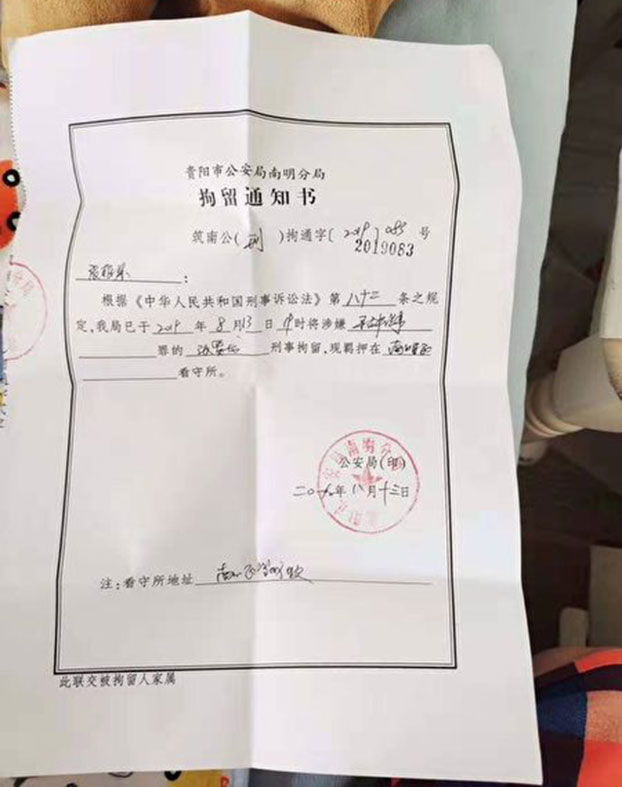 贵阳市公安局南明分局
拘留通知书
筑南公(刑)拘通字[2019]085号
2019083
:
根据《中华人民共和国刑事诉讼法》第八十二条之规
定,我局已于2019年8月13日 时将涉嫌
罪的 刑事拘留,现羁押在南明区
看守所。
南明分
公安局(印)
二〇一九年八月十三日
注:看守所地址
此联交被拘留人家属